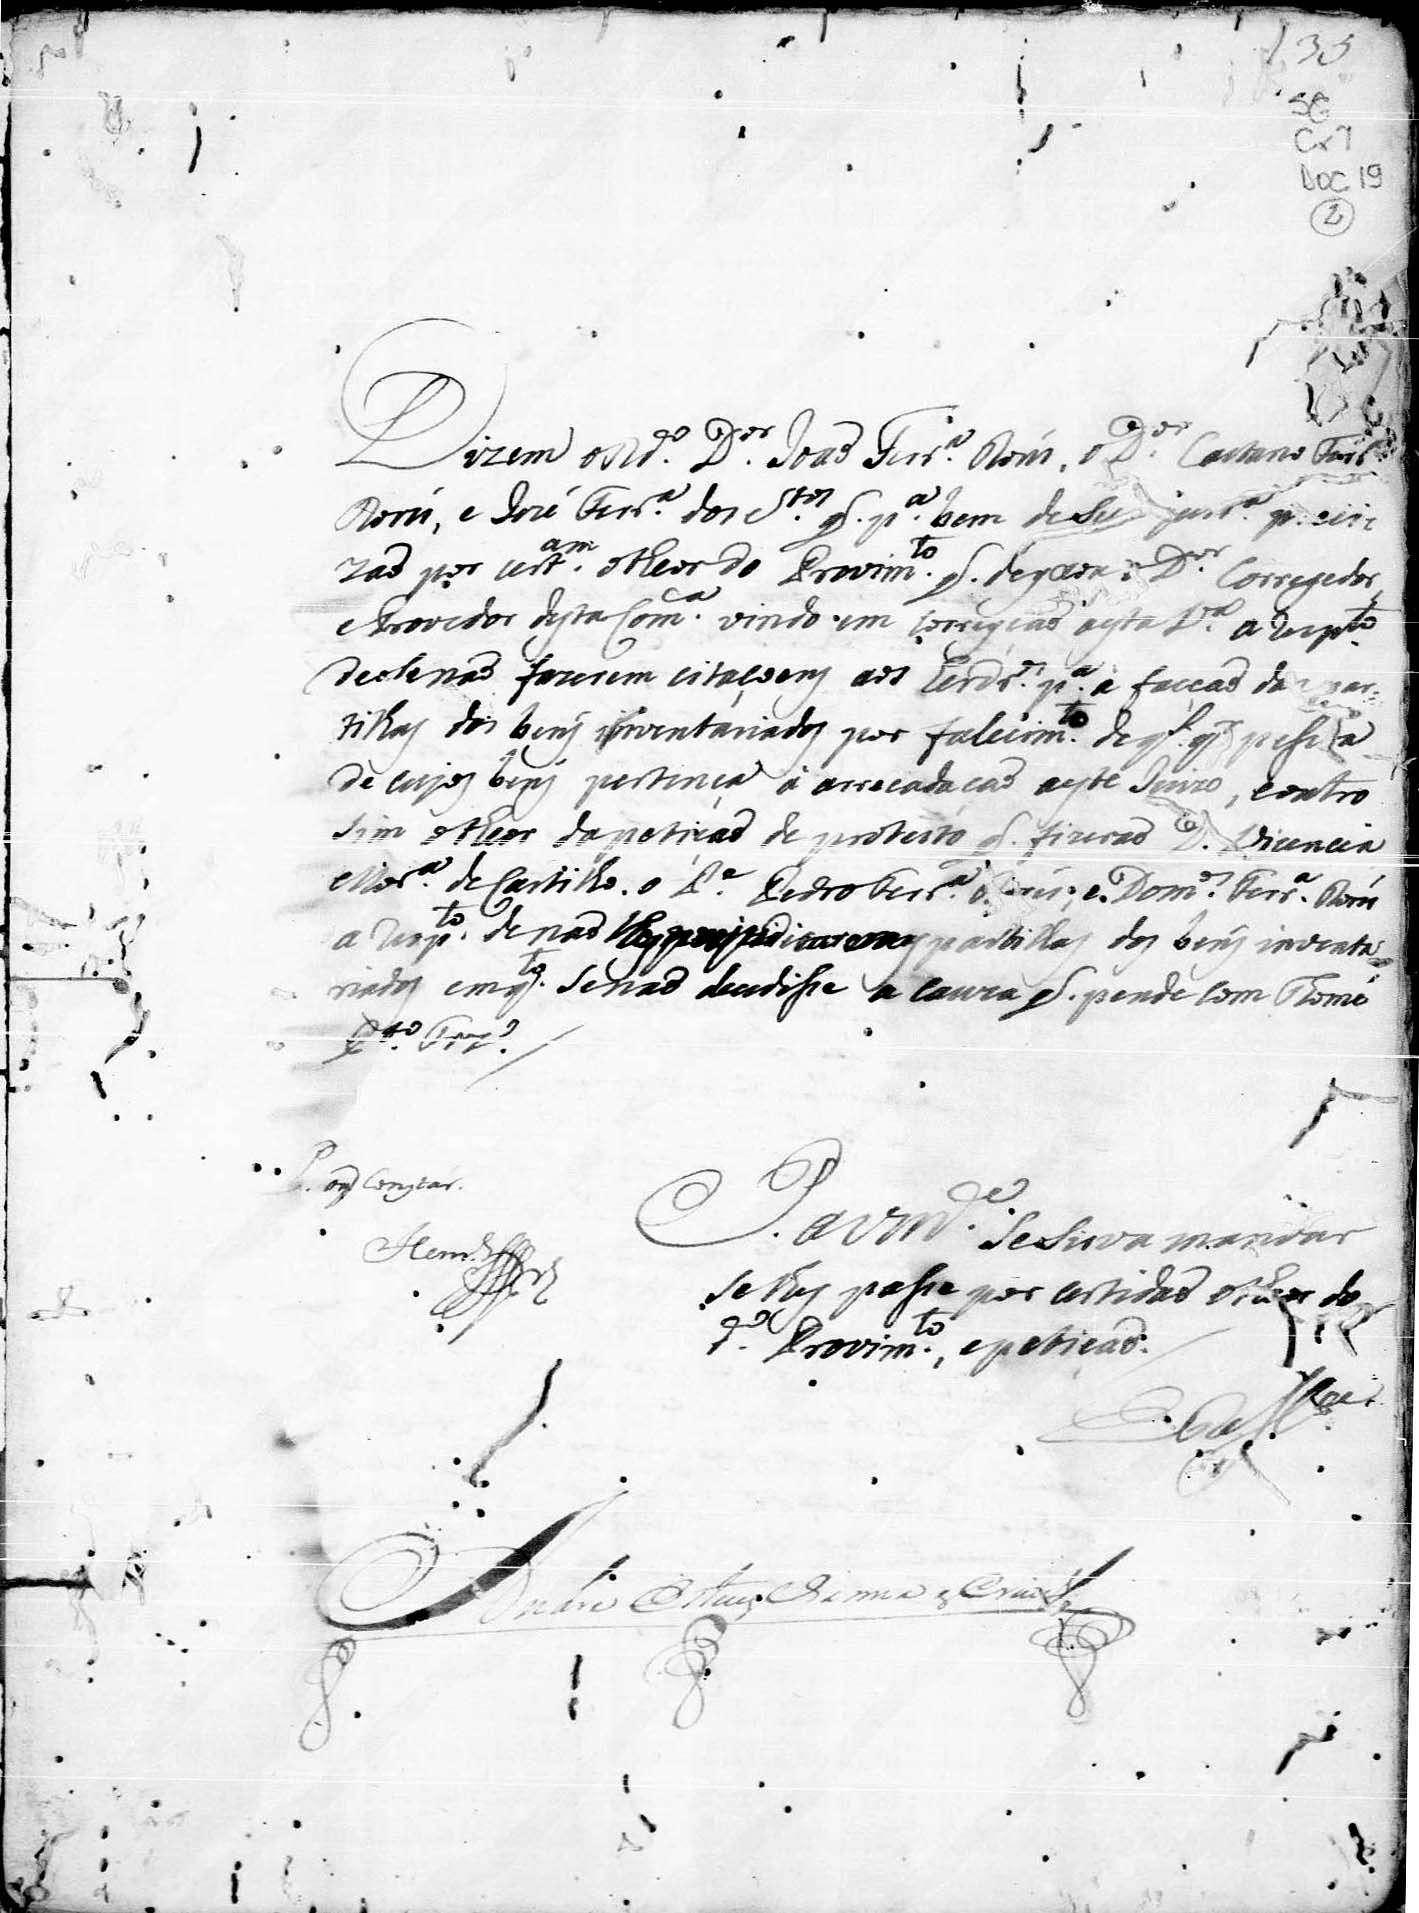 135
SG
Cx 7
DOC 19
2
Dizem o Rd.º D.or Joaõ Ferr.ª Roriz, o D.or Caetano Ferr.ª
Roriz, e José Ferr.ª dos S.tos q. p.ª bem de sua just.ª preci
zaõ por cert.am o theor do Provim.to q. deyxou o D.or Corregedor,
e Provedor desta Com.ª vindo em correyçaõ a esta V.ª a resp.to
de se naõ fazerem citaçoens aos Herdr.os p.ª a facçaõ das par=
tilhas dos bens inventariados por falecim.to de q.l q.r pessoa
de cujos bens pertença a arrecadaçaõ a este Juizo, e outro
sim o theor da petiçaõ de protesto q. fizeraõ D. Vicencia
Mor.ª de Castilho, o P.e Pedro Ferr.ª Roriz, e Dom.os Ferr.ª Roriz
a resp.to de naõ lhes prejudicarem as partilhas dos bens inventa
riados em q.to se naõ decidisse a cauza q. pende com Thomé
P. do q. constar.
P. a Vm.ce Se sirva mandar
se lhes passe por certidaõ o theor do
d.º Provim.to, e petiçaõ.
E. R. M.ce
André Alves Vianna